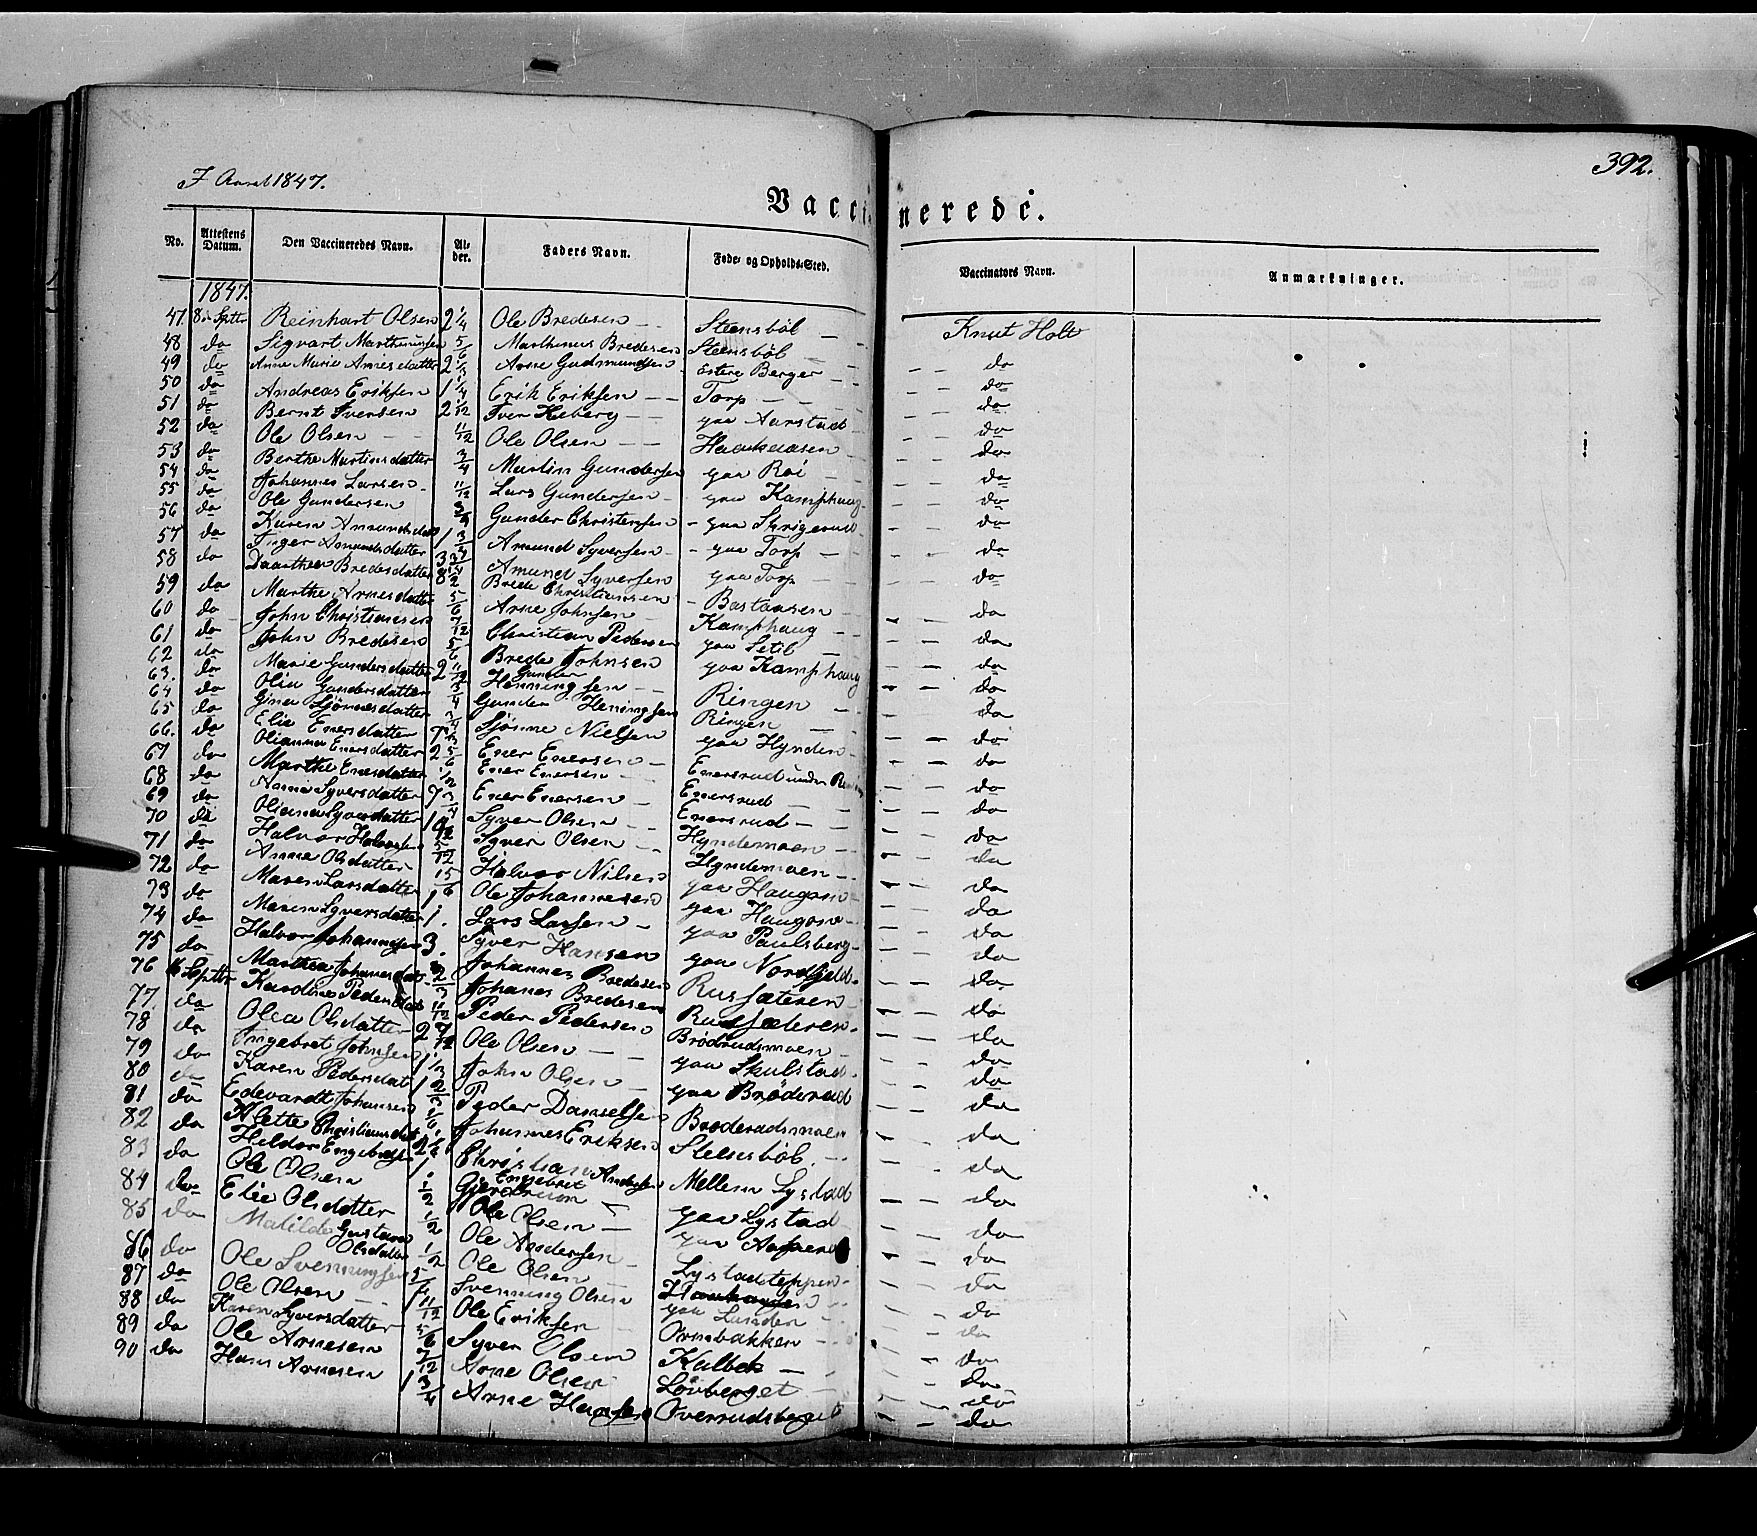 392.
I Aaret 1847.
Vaccinerede.
No. Attestens Datum. Den Vaccineredes Navn. Alder. Faders Navn. Føde- og Opholds-Sted. Vaccinators Navn. Anmærkninger.
1847.
47. 8de Septbr Reinhart Olsen 2 1/4 Ole Bredesen — Steensböl — Knut Holt
48 do Sigvart Marthinusen 5/6 Marthinus Bredesen Steensböl — — — do
49 do Anne Marie Arnesdatter 2 1/3 Arne Gudmundsen Estere Berger — — — do
50 do Andreas Eriksen 1 1/4 Erik Eriksen — — Torp — — — — — do
51 do Bernt Iversen 2 1/12 Iver Keberg — — paa Aarstad — — do
52 do Ole Olsen — — 11/12 Ole Olsen — — Haakaasen — — — do
53 do Berthe Martinsdatter 3/4 Martin Gundersen paa Roi — — — — do
54 do Johannes Larsen 11/12 Lars Gundersen — paa Kamphaug — — do
55 do Ole Gundersen 3/4 Gunder Christensen — paa Skrigerud — — do
56 do Karen Amundsdat 1 3/4 Amund Syversen — — paa Torp — — — do
57 do Inger Amundsdatter 3 3/4 Amund Syversen paa Torp — — — do
58 do Daarthea Bredesdatter 8 1/2 Brede Christiansen — Bastaasen — — — do
59 do Marthe Arnesdatter 5/6 Arne Johnsen — Kamphaug — — — — do
60 do John Christiansen 7/12 Christian Pedersen paa Setil — — — do
61 do John Bredesen 5/6 Brede Johnsen paa Kamphaug — — do
62 do Marie Gundersdatter 2 11/12 Gunder Henningsen — — Ringen — — — do
63. do Olia Gundersdatter 3/4 Gunder Heningsen Ringen — — — do
64 do Gina Sjönnesdatter 3/4 Sjönne Nielsen paa Hynden — — do
65 do Elie Enersdatter Ener Enersen — Enersrud under — — do
66. do Olianna Enersdatter 2 5/6 Ener Enersen — Enersrud — — — do
67 do Marthe Enersdatter 1/2 Ener Enersen — Enersrud — — — do
68 do Anne Syversdatter 7 3/4 Syver Olsen — — Hyndemoen — — — do
69 do Oliana Syversdatter Syver Olsen — — Hyndemoen — — — do
70 do Halvor Halvorsen 5/12 Halvor Nilsen paa Haugsrud — — do
71 do Anne Olsdatter Ole Johannesen paa Haugsrud — — do
72 do Maren Larsdatter 1 Lars Larsen — paa Paulsberg — — do
73 do Maren Syversdatter 1. Syver Hansen paa Nordfjeld — — do
74 do Halvor Johannesen 3. Johannes Bredesen Rusfæteren — — do
75 do Marthea Johannesdat 2/3 Johanes Bredesen Rudsæteren — — do
76 16 Septbr Karoline Pedersdat 11/12 Peder Pedersen Brödrudsmoen — — — do
77. do Olea Olsdatter 2 7/12 Ole Olsen — — paa Skulstad — — do
78 do Ingebret Johnsen 1 1/3 John Olsen — paa Bröderud — — do
79 do Karen Pedersdat 1 2/3 Peder Danielsen Broderudsmoen — — do
80 do Edevardt Johansen 1/6 Johannes Eriksen Steensböl — — — do
81 do Alette Christiansdat Christian Andersen Mellem Lystad — — do
82 do Heldor Engebretsen 1 Engebret Gjerdrum paa Lystad — — do
83 do Ole Olsen 1/2 Ole Olsen — paa — — do
84 do Elie Olsdatter 1/2 Ole Andersen Lystadteppen — — do
85 do Matilde Gustava Olsdatter 1/2 Ole Olsen — — do
86 do Ole Svenningsen Svenning Olsen paa Lunden — — do
87 do Ole Olsen — — 11/12 Ole Eriksen Ormbakken — — do
88 do Karen Syversdatter 5/6 Syver Olsen Kalbek — — — do
89 do Ole Arnesen 7/12 Arne Olsen Lövberget — — — do
90 do Hans Arnesen 1 3/4 Arne Hansen Overrudsberget — — do